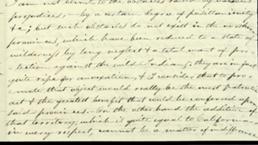 I am not blind to the obstacles raised by national
prejudices, - by a certain degree of
&c; but such obstacles do not exist in the northern
provinces, which have been reduced to a state of
wilderness, by long neglect & a total want of pro-
tection against the wild Indians; they are in fact
quite ripe for annexation, & I consider, that to pro-
mote that object would really be the most patriotic
act & the greatest benefit that could be conferred upon
said provinces. On the other hand the addition of
that territory, which is quite equal to California
in every respect, cannot be a matter of indifference